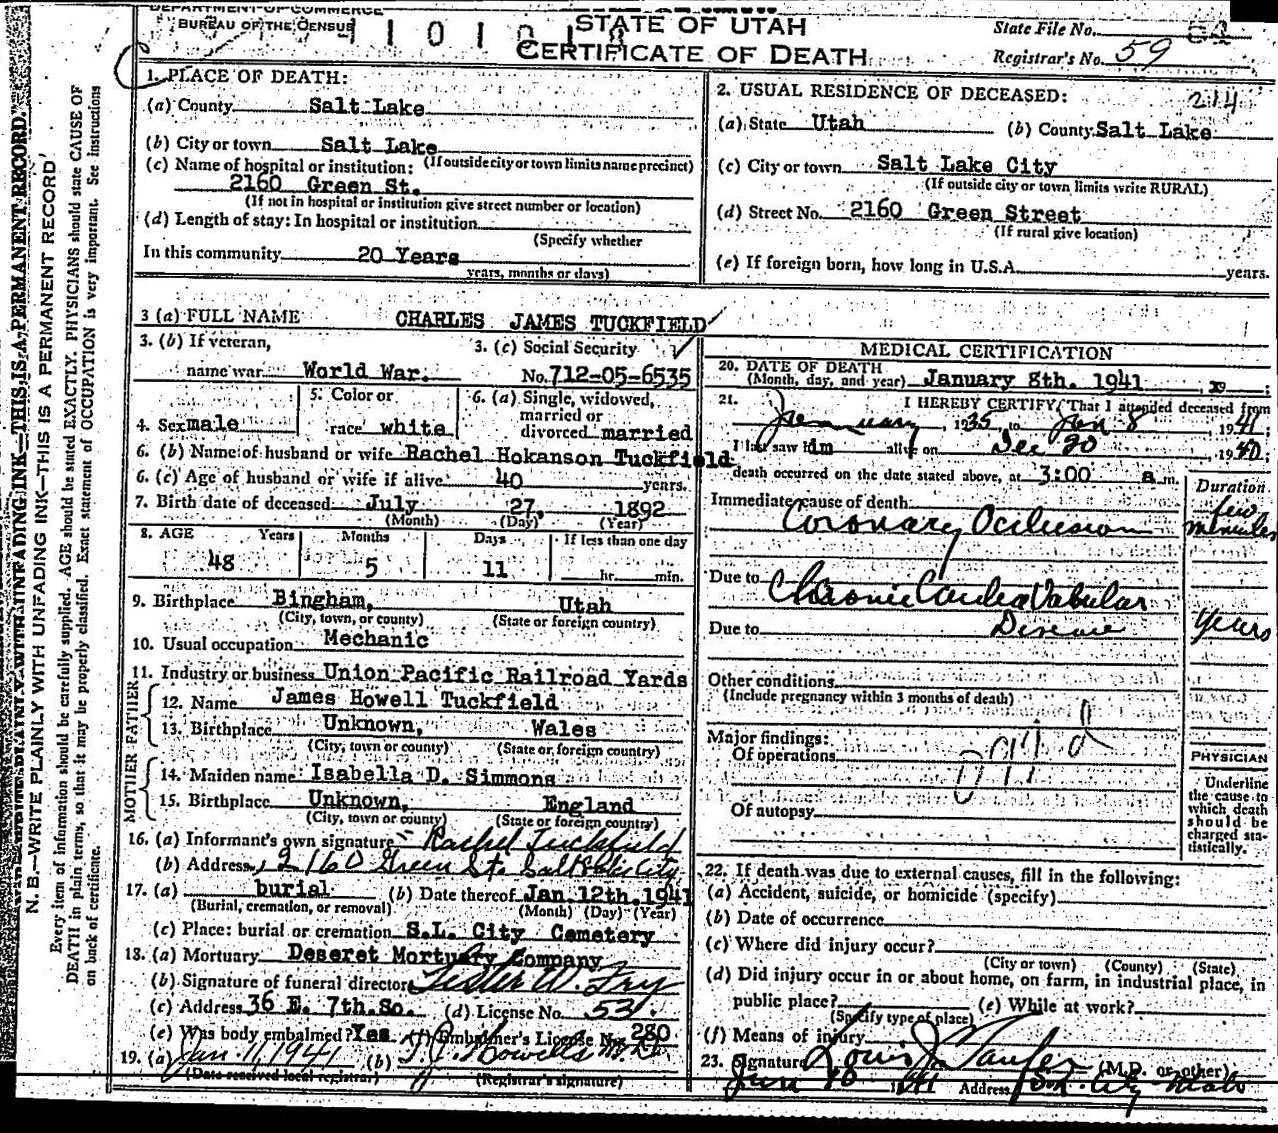 DEPARTMENT OF COMMERCE
BUREAU OF THE CENSUS
STATE OF UTAH
CERTIFICATE OF DEATH
State File No.
Registrar's No. 59
1. PLACE OF DEATH:
(a) County Salt Lake
(b) City or town Salt Lake
(If outside city or town limits name precinct)
(c) Name of hospital or institution:
2160 Green St.
(If not in hospital or institution give street number or location)
(d) Length of stay: In hospital or institution
(Specify whether
In this community 20 Years
years, months or days)
2. USUAL RESIDENCE OF DECEASED:
214
(a) State Utah (b) County Salt Lake
(c) City or town Salt Lake City
(If outside city or town limits write RURAL)
(d) Street No. 2160 Green Street
(If rural give location)
(e) If foreign born, how long in U.S.A. years.
3 (a) FULL NAME CHARLES JAMES TUCKFIELD
3. (b) If veteran,
name war World War.
3. (c) Social Security
No. 712-05-6535
4. Sex male
5. Color or
race white
6. (a) Single, widowed,
married or
divorced married
6. (b) Name of husband or wife Rachel Hokanson Tuckfield
6. (c) Age of husband or wife if alive 40 years.
7. Birth date of deceased July 27, 1892
(Month) (Day) (Year)
8. AGE Years Months Days If less than one day
48 5 11 hr. min.
9. Birthplace Bingham, Utah
(City, town, or county) (State or foreign country)
10. Usual occupation Mechanic
11. Industry or business Union Pacific Railroad Yards
FATHER
12. Name James Howell Tuckfield
13. Birthplace Unknown, Wales
(City, town or county) (State or foreign country)
MOTHER
14. Maiden name Isabella D. Simmons
15. Birthplace Unknown, England
(City, town or county) (State or foreign country)
16. (a) Informant's own signature Rachel Tuckfield
(b) Address 2160 Green St. Salt Lake City
17. (a) burial (b) Date thereof Jan. 12th. 1941
(Burial, cremation, or removal) (Month) (Day) (Year)
(c) Place: burial or cremation S.L. City Cemetery
18. (a) Mortuary Deseret Mortuary Company
(b) Signature of funeral director Lester W. Fry
(c) Address 36 E. 7th. So. (d) License No. 53
(e) Was body embalmed? Yes (f) Embalmer's License No. 280
19. (a) Jan. 11, 1941 (b) T. J. Howells M.D.
(Date received local registrar) (Registrar's signature)
MEDICAL CERTIFICATION
20. DATE OF DEATH
(Month, day, and year) January 8th. 1941, 19
21. I HEREBY CERTIFY, That I attended deceased from
January, 1935, to Jan 8 1941;
I last saw him alive on Dec 20 1940;
death occurred on the date stated above, at 3:00 a m.
Duration
Immediate cause of death
Coronary Occlusion few minutes
Due to Chronic Cardio Valvular
Due to Disease years
Other conditions
(Include pregnancy within 3 months of death)
Major findings:
Of operations
Of autopsy
PHYSICIAN
Underline
the cause to
which death
should be
charged sta-
tistically.
22. If death was due to external causes, fill in the following:
(a) Accident, suicide, or homicide (specify)
(b) Date of occurrence
(c) Where did injury occur?
(City or town) (County) (State)
(d) Did injury occur in or about home, on farm, in industrial place, in
public place? (e) While at work?
(Specify type of place)
(f) Means of injury
23. Signature Louis J. Taufer (M.D. or other)
1941 Address
N. B.—WRITE PLAINLY WITH UNFADING INK—THIS IS A PERMANENT RECORD
Every item of information should be carefully supplied. AGE should be stated EXACTLY. PHYSICIANS should state CAUSE OF
DEATH in plain terms, so that it may be properly classified. Exact statement of OCCUPATION is very important. See instructions
on back of certificate.